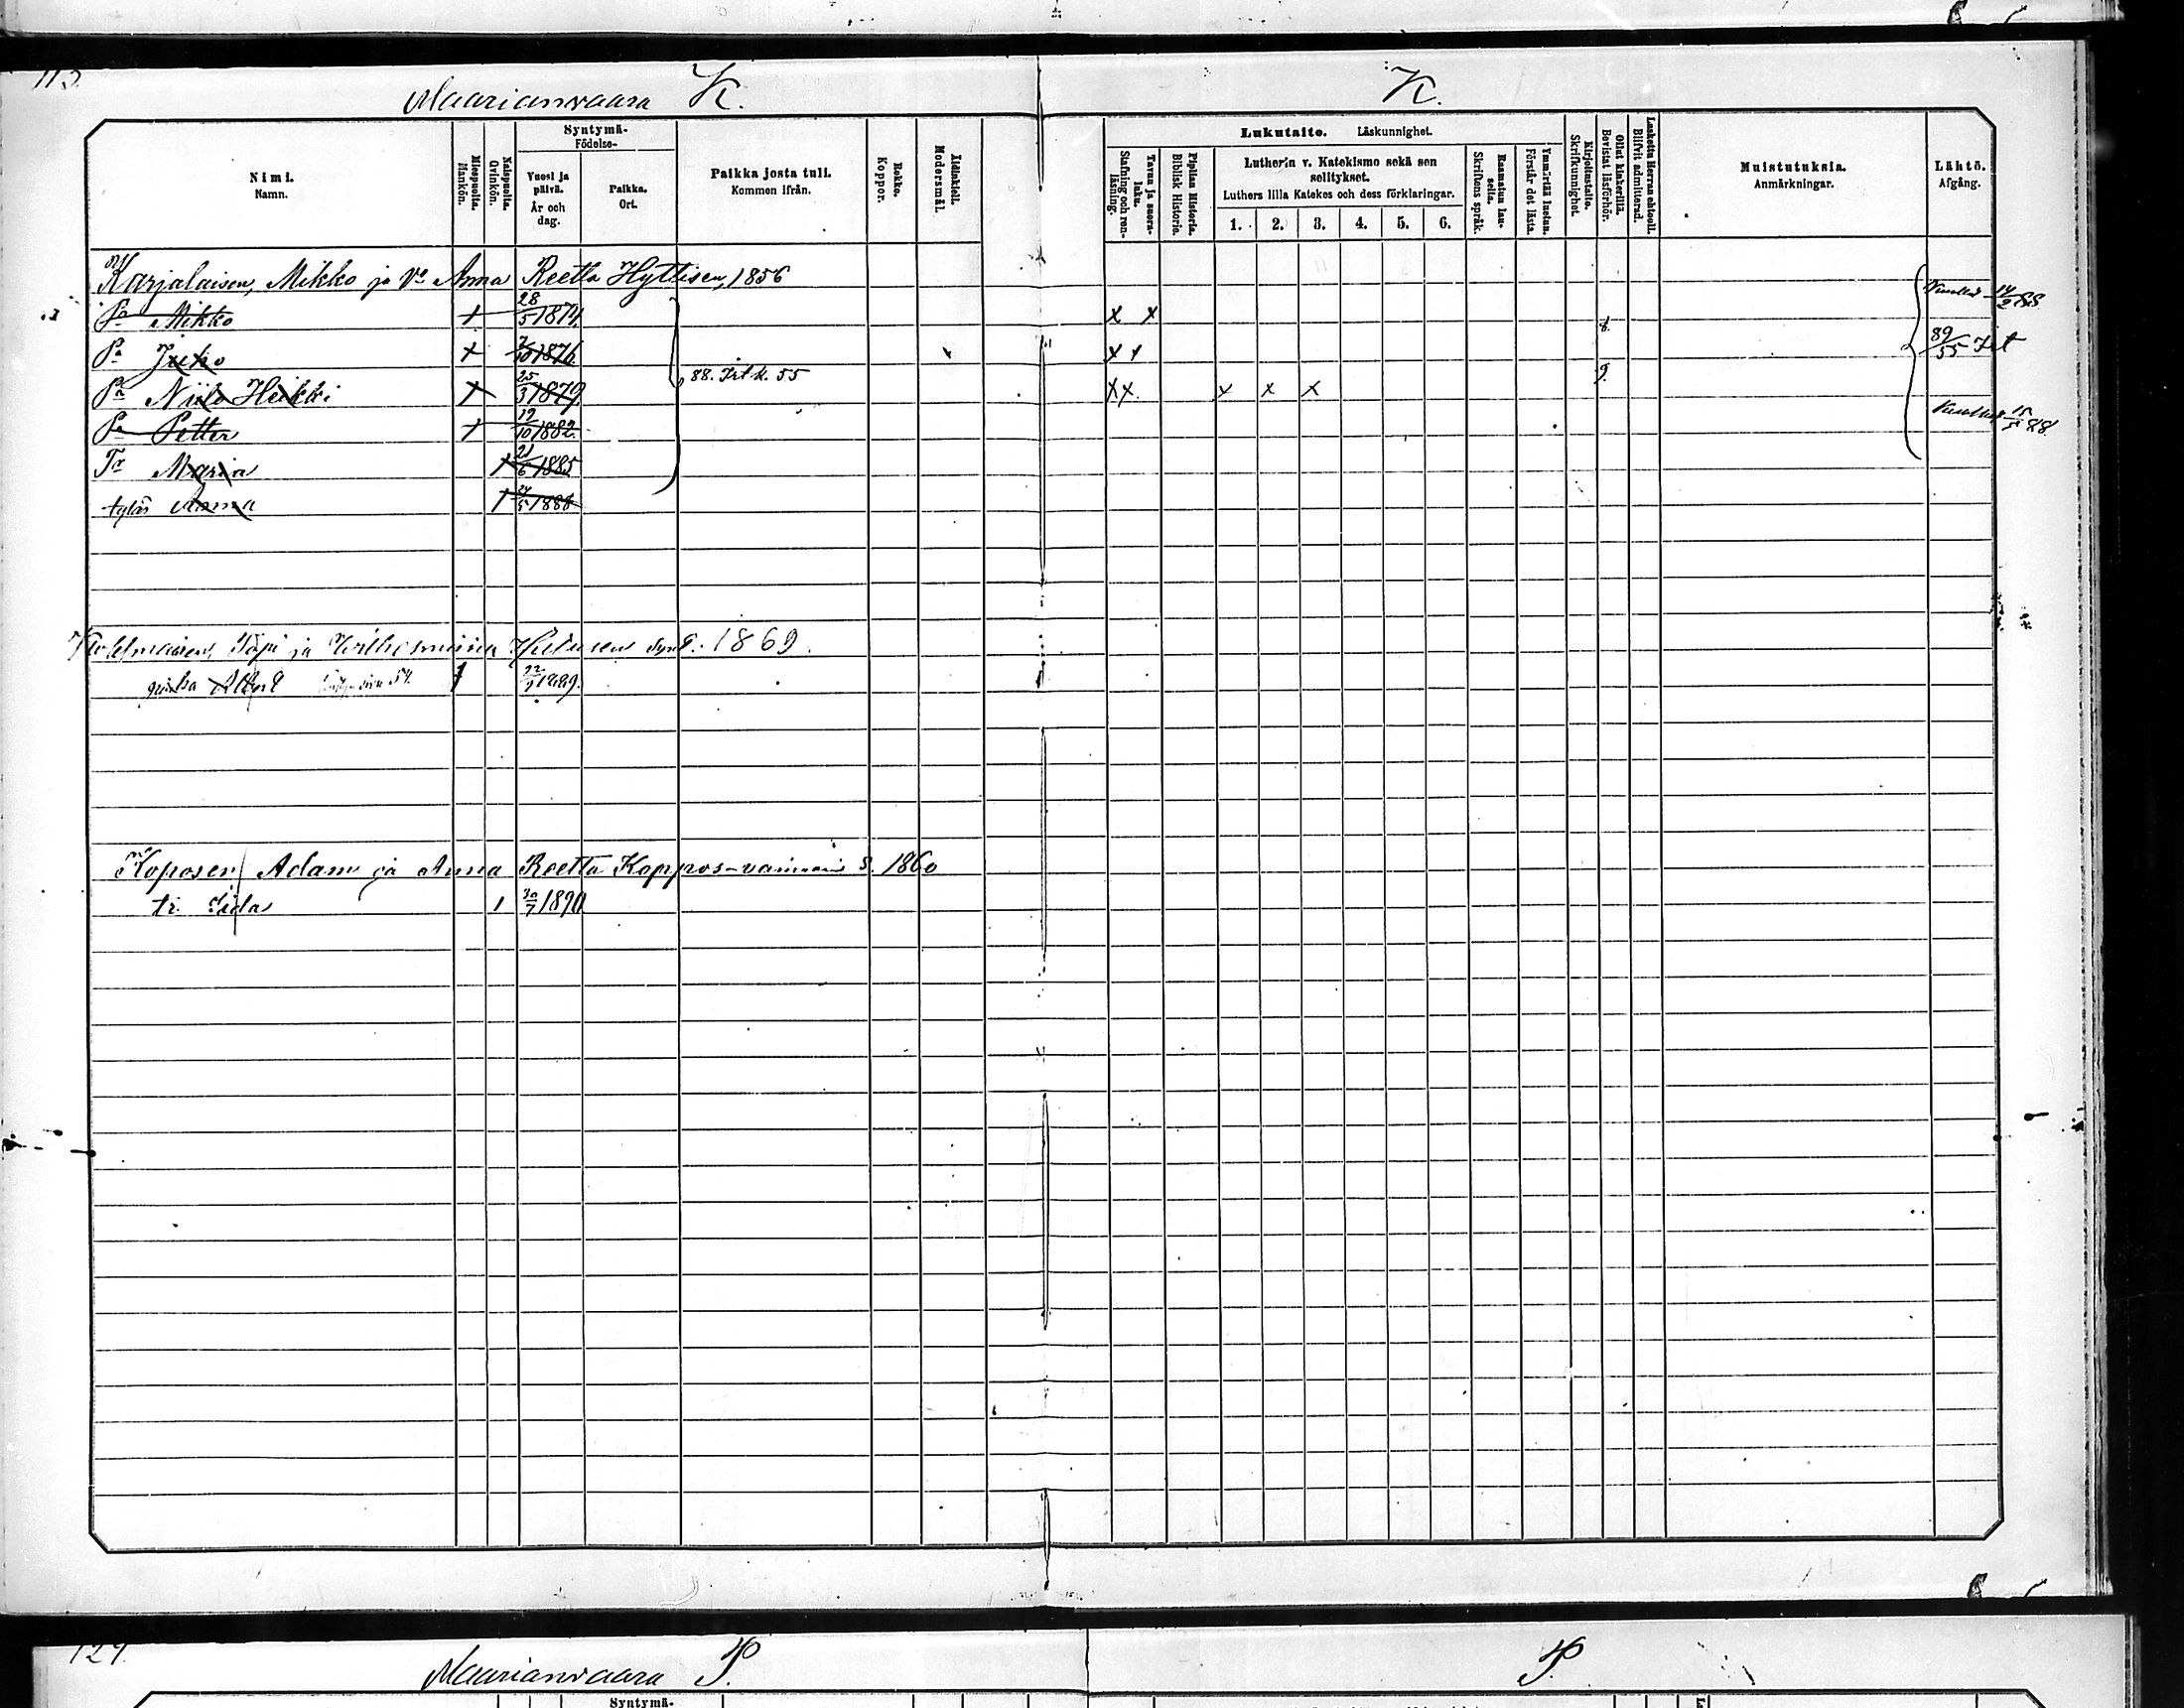 113.
Maarianvaara K. K.
Nimi. Namn.
Miespuolia. Mankön.
Naispuolia. Qvinkön.
Syntymä- Födelse-
Vuosi ja päivä. År och dag.
Paikka. Ort.
Paikka josta tuli. Kommen ifrån.
Rokko. Koppor.
Äidinkieli. Modersmål.
Lukutaito. Läskunnighet.
Tavan ja suora-luku. Stafning och ren-läsning.
Piplian Historia. Biblisk Historie.
Lutherin v. Katekismo sekä sen selitykset.
Luthers lilla Katekes och dess förklaringar.
1. 2. 3. 4. 5. 6.
Raamatun lau-seita. Skriftens språk.
Ymmärtää luetun. Förstår det lästa.
Kirjoitustaito. Skrifkunnighet.
Ollut kinkerillä. Bevistat läsförhör.
Laskettu Herran ehtooll. Blifvit admitterad.
Muistutuksia. Anmärkningar.
Lähtö. Afgång.
Karjalaisen, Mikko ja Vo Anna Reetta Hyttisen, 1856
Pa Mikko + 28/5 1874 x x Kuollut 14/2 88
Pa Juho + 7/10 1876 x x 89/55 Irt
Pa Niilo Heikki + 25/3 1879 88. Irt k. 55 x x x x x 9.
Pa Petter + 19/10 1882 Kuollut 15/5 88
Tr Maria + 21/6 1885
tytär Anna 1 24/5 1888
Kolehmaisen, Tapi ja Wilhelmiina synt. 1869
poika Albert 54. 1 22/9 1889.
Koposen Adam ja Anna Reetta Koppos-vainaan s. 1860
tr. Iida 1 30/7 1890
124.
Maarianvaara P. P.
Syntymä-